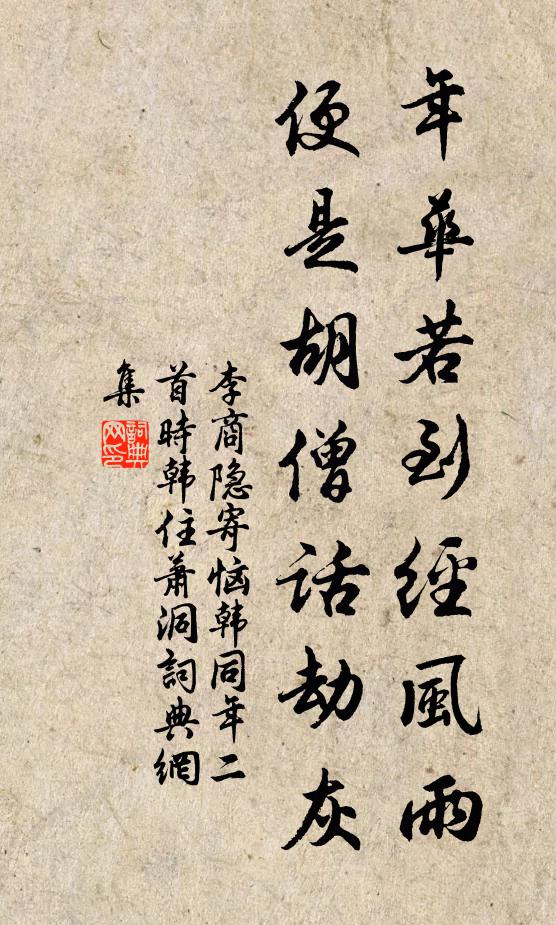 年華若到經風雨
便是胡僧話劫灰
李商隐寄恼韩同年二
首時韩住蕭洞詞典網
集
詞典
网印